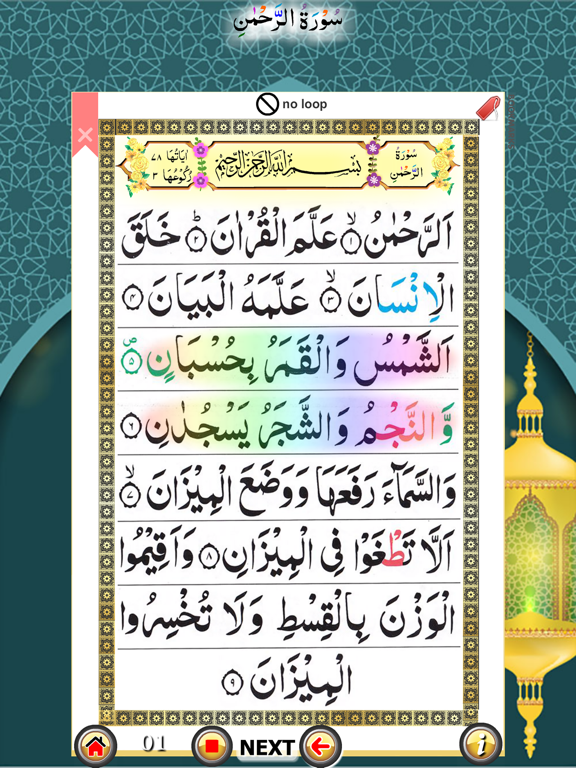 سُوْرَةُ الرَّحْمٰنِ
no loop
سُوْرَةُ الرَّحْمٰنِ
بِسْمِ اللّٰهِ الرَّحْمٰنِ الرَّحِيْمِ
اٰيَاتُهَا ٧٨
رُكُوْعُهَا ٣
اَلرَّحْمٰنُ ۙ﴿۱﴾ عَلَّمَ الْقُرْاٰنَ ؕ﴿۲﴾ خَلَقَ
الْاِنْسَانَ ۙ﴿۳﴾ عَلَّمَهُ الْبَيَانَ ﴿۴﴾
اَلشَّمْسُ وَالْقَمَرُ بِحُسْبَانٍ ۪﴿۵﴾
وَّالنَّجْمُ وَالشَّجَرُ يَسْجُدٰنِ ﴿۶﴾
وَالسَّمَآءَ رَفَعَهَا وَوَضَعَ الْمِيْزَانَ ۙ﴿۷﴾
اَلَّا تَطْغَوْا فِي الْمِيْزَانِ ﴿۸﴾ وَاَقِيْمُوا
الْوَزْنَ بِالْقِسْطِ وَلَا تُخْسِرُوا
الْمِيْزَانَ ﴿۹﴾
01
NEXT
i